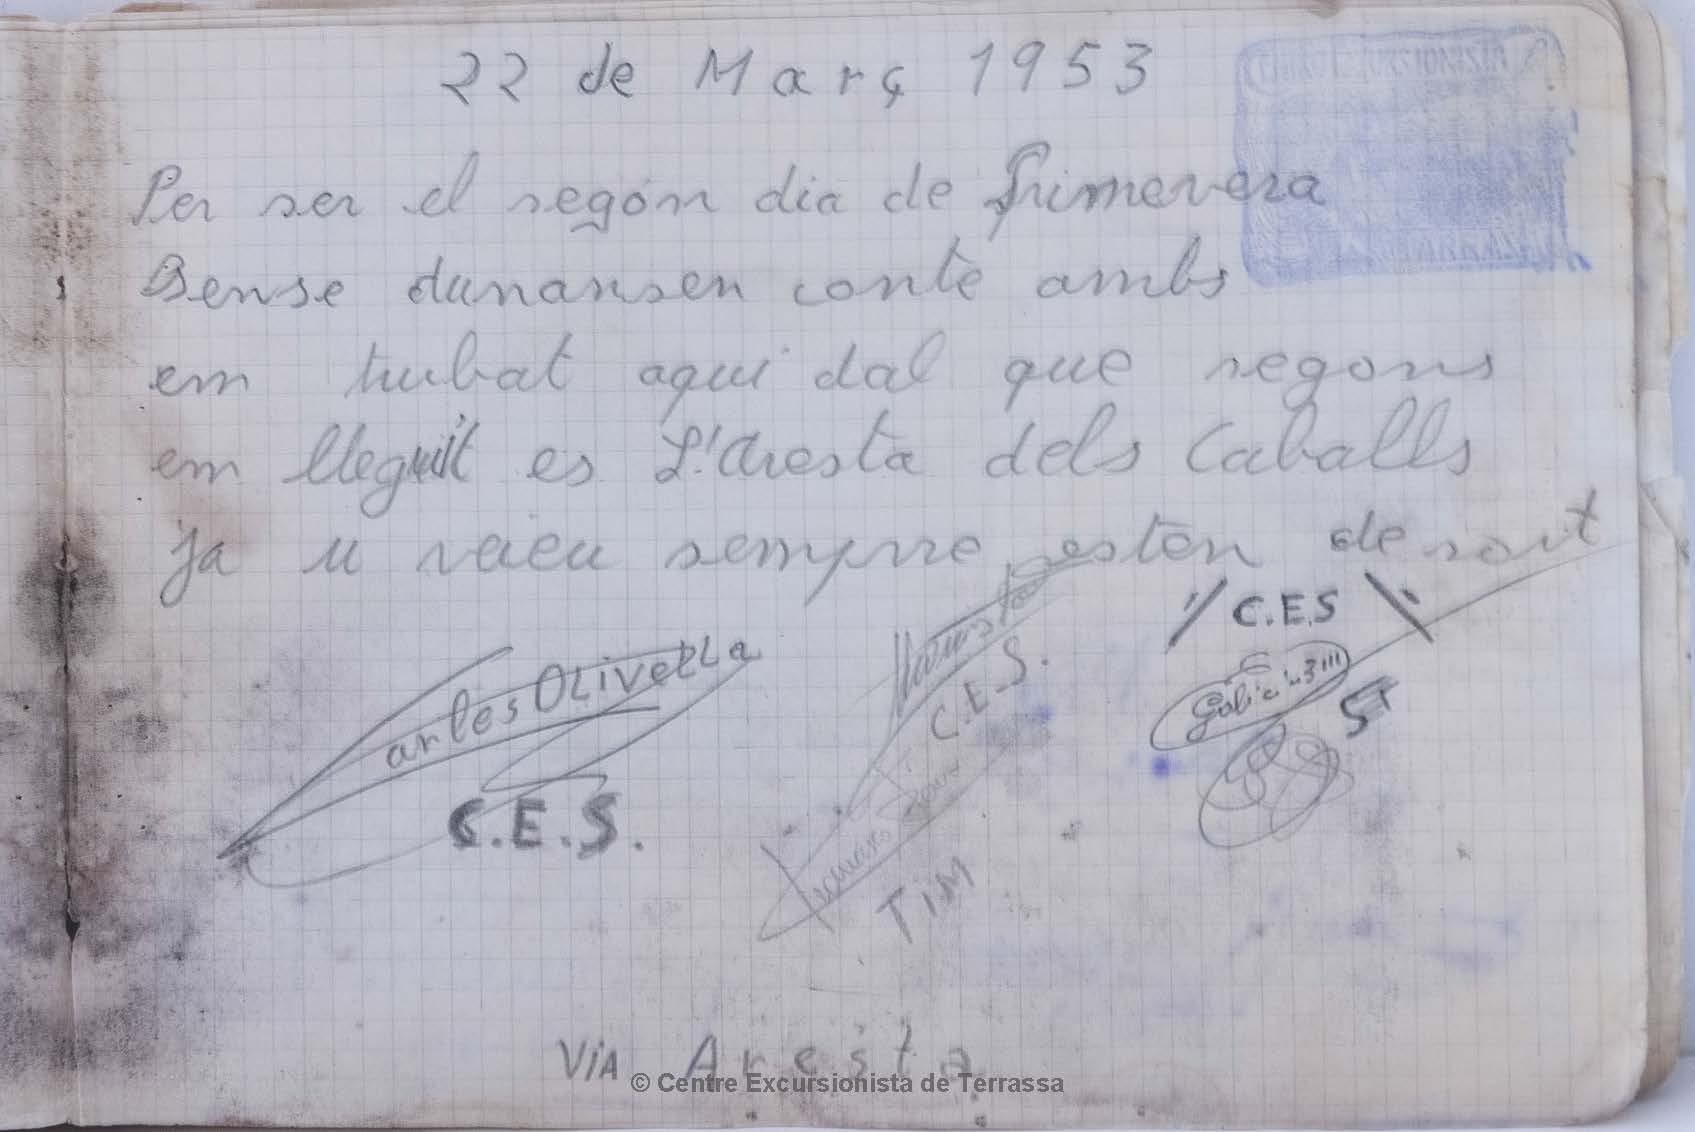 22 de Març 1953
Per ser el segón dia de Primevera
Sense dunansen conte ambs
em trubat aqui dal que segons
em lleguit es L'Aresta dels Caballs
ja u veieu sempre estèn de sort
C.E.S
arles OLivella
C.E.S.
C.E.S.
TiM
ViA Aresta
© Centre Excursionista de Terrassa